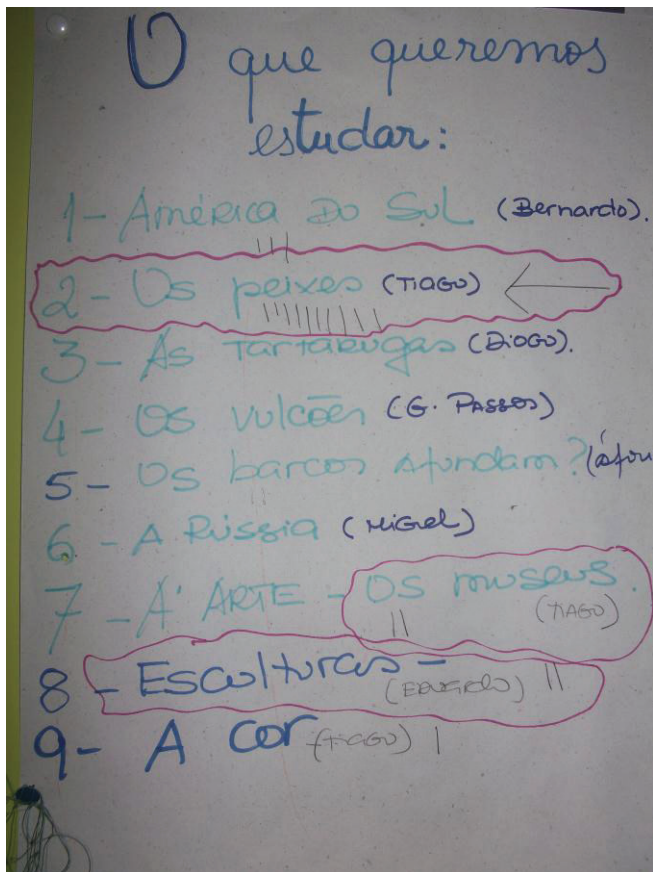 O que queremos
estudar:
1- América Do Sul (Bernardo).
2- Os peixes (TIAGO)
3- As TarTARugas (DioGo).
4- OS vulcões (G. PASSOS)
5- OS barcos Afundam? (
6- A Rússia (MiGuel)
7- A' ARTE - OS museus.
(TIAGO)
8- Esculturas -
(EDUARDO)
9- A Cor (TIAGO)